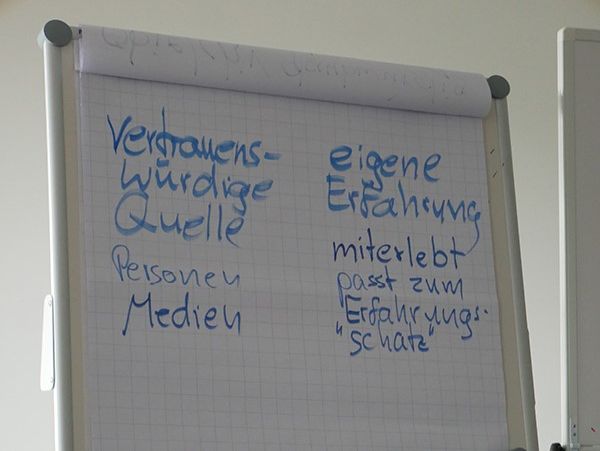 Vertrauens-
würdige
Quelle
Personen
Medien
eigene
Erfahrung
miterlebt
passt zum
"Erfahrungs-
schatz"